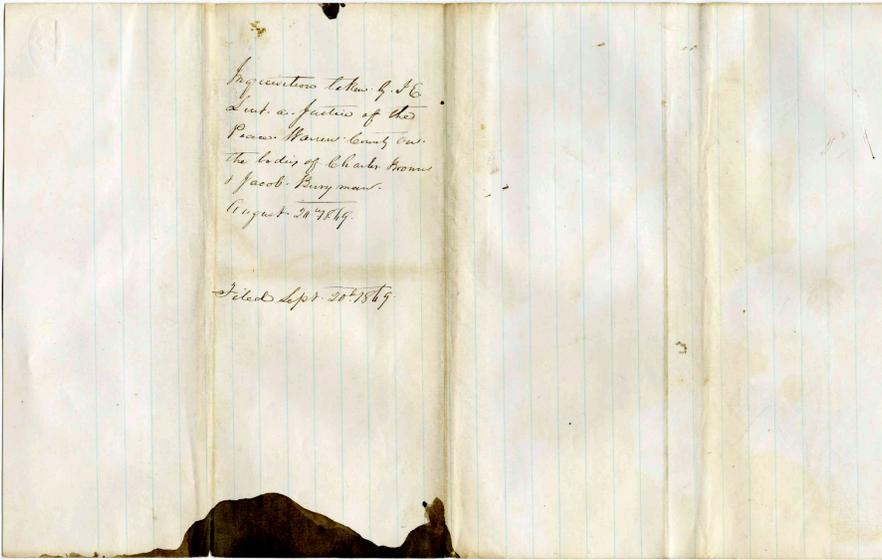 Inquisition taken by J E
Lint a Justice of the
Peace Warren County on
the bodies of Charles Brown
& Jacob Burgman.
August 20th 1869.
Filed Sept. 20th 1869.